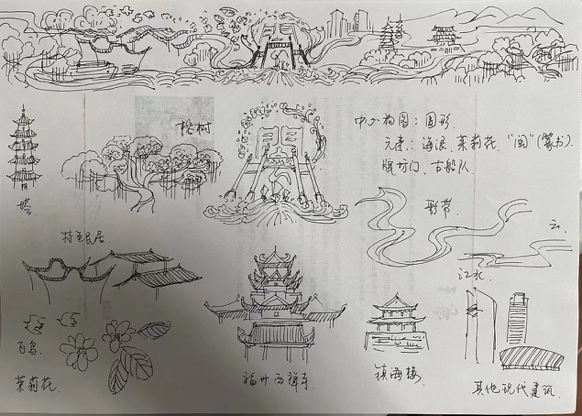 榕树
中心构图：圆形.
元素：海浪、茉莉花、"闽"(篆书)、
牌坊门、古船队
塔
飘带
云.
特色民居
江水.
百鸟
茉莉花.
福州西禅寺
镇海楼
其他现代建筑